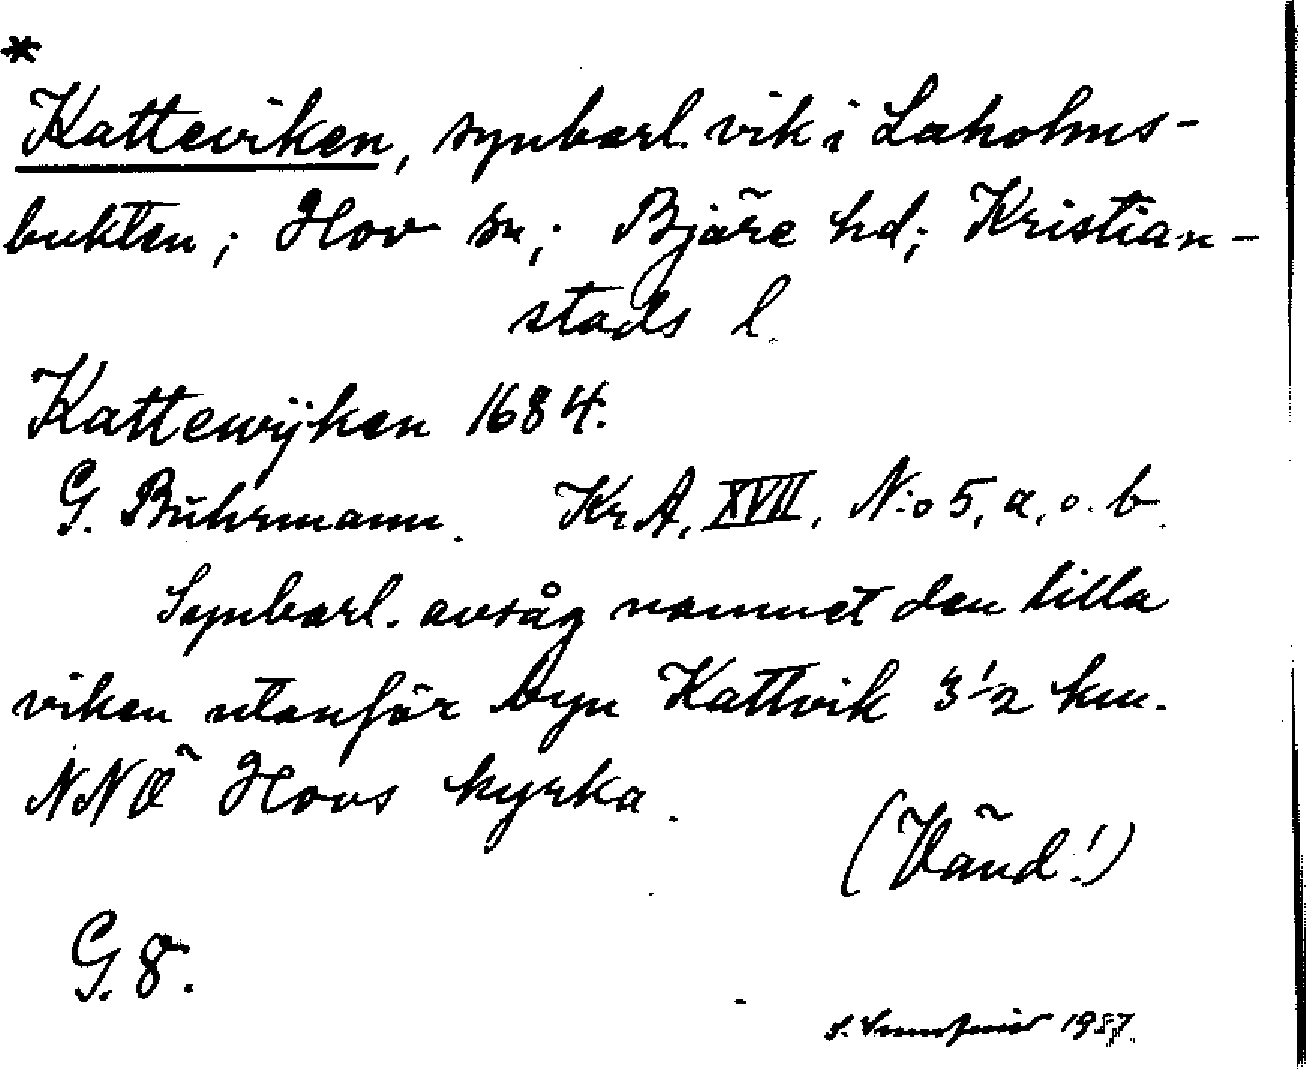 *
Katteviken, synbarl. vik i Laholms-
bukten; Hov sn; Bjäre hd; Kristian-
stads l.
Kattewijken 1684.
G. Buhrmann. Kr.A. XVII, N:o 5, a. o. b.
Synbarl. avsåg namnet den lilla
viken utanför byn Kattvik 3 1/2 km.
NNÖ Hovs kyrka.
(Vänd!)
G. 8.
S. 1987.